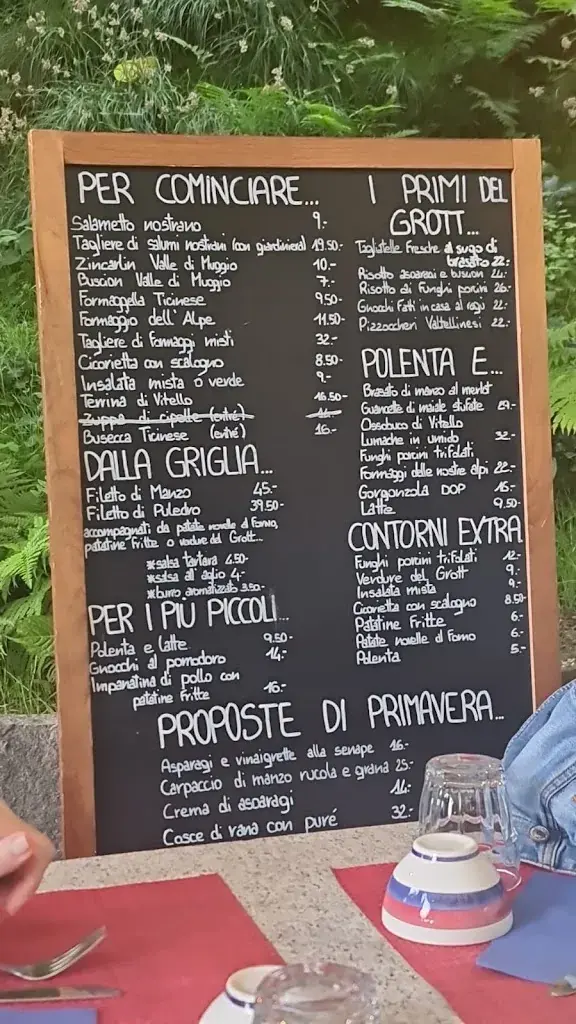 PER COMINCIARE...
Salametto nostrano 9.-
Tagliere di salumi nostrani (con giardiniera) 19.50.-
Zincarlin Valle di Muggio 10.-
Buscion Valle di Muggio 7.-
Formaggella Ticinese 9.50-
Formaggio dell'Alpe 11.50-
Tagliere di formaggi misti 32.-
Cicorietta con scalogno 8.50-
Insalata mista o verde 9.-
Terrina di Vitello 16.50-
Zuppa di cipolle (entré) 11.-
Busecca Ticinese (entré) 16.-
DALLA GRIGLIA...
Filetto di Manzo 45.-
Filetto di Puledro 39.50-
accompagnati da patate novelle al forno,
patatine fritte o verdure del Grott...
*salsa tartara 4.50-
*salsa all'aglio 4.-
*burro aromatizzato 3.50-
PER I PIÙ PICCOLI...
Polenta e latte 9.50-
Gnocchi al pomodoro 14.-
Impanatina di pollo con
patatine fritte 16.-
I PRIMI DEL
GROTT...
Tagliatelle Fresche al sugo di
brasato 22.-
Risotto asparagi e buscion
Risotto ai Funghi porcini 26.-
Gnocchi Fatti in casa al ragù
Pizzoccheri Valtellinesi 22.-
POLENTA E...
Brasato di manzo al merlot
Guancette di maiale stufate 29.-
Ossobuco di Vitello
Lumache in umido 32.-
Funghi porcini trifolati
Formaggi delle nostre alpi 22.-
Gorgonzola DOP 16.-
Latte 9.50-
CONTORNI EXTRA
Funghi porcini trifolati 12.-
Verdure del Grott 9.-
Insalata mista 9.-
Cicorietta con scalogno 8.50-
Patatine Fritte 6.-
Patate novelle al Forno 6.-
Polenta 5.-
PROPOSTE DI PRIMAVERA...
Asparagi e vinaigrette alla senape 16.-
Carpaccio di manzo rucola e grana 25.-
Crema di asparagi 14.-
Cosce di rana con puré 32.-